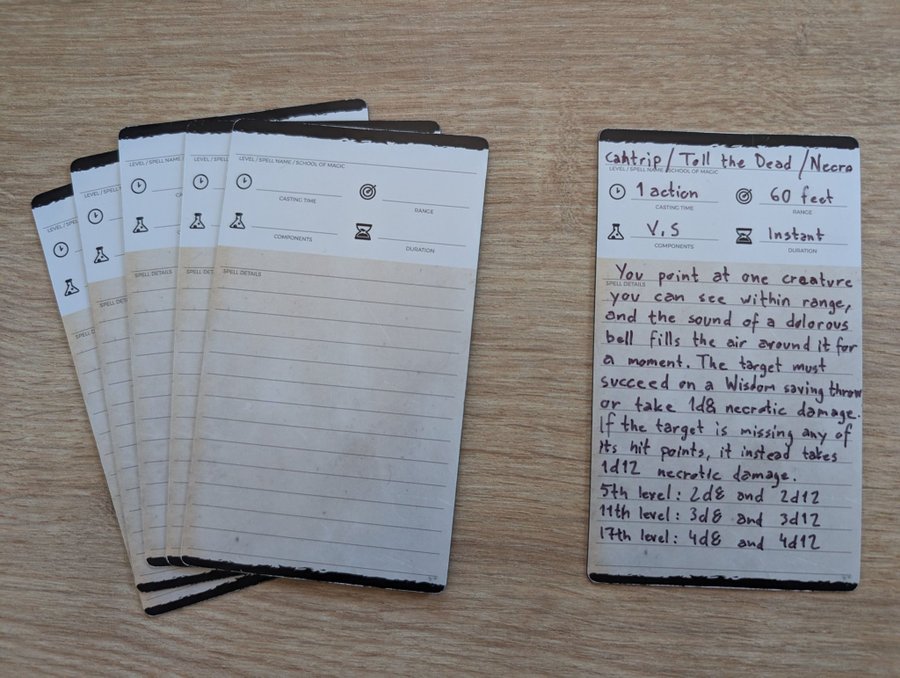 LEVEL / SPELL
LEVEL / SPELL
LEVEL / SPELL NAME
LEVEL / SPELL NAME
LEVEL / SPELL NAME / SCHOOL OF MAGIC
CASTING TIME
RANGE
COMPONENTS
DURATION
SPELL DETAILS
SPELL DETAILS
SPELL DETAILS
SPELL DETAILS
SPELL DETAILS
Cantrip / Toll the Dead / Necro
LEVEL / SPELL NAME / SCHOOL OF MAGIC
1 action
60 feet
CASTING TIME
RANGE
V, S
Instant
COMPONENTS
DURATION
You point at one creature
SPELL DETAILS
you can see within range,
and the sound of a dolorous
bell fills the air around it for
a moment. The target must
succeed on a Wisdom saving throw
or take 1d8 necrotic damage.
If the target is missing any of
its hit points, it instead takes
1d12 necrotic damage.
5th level: 2d8 and 2d12
11th level: 3d8 and 3d12
17th level: 4d8 and 4d12